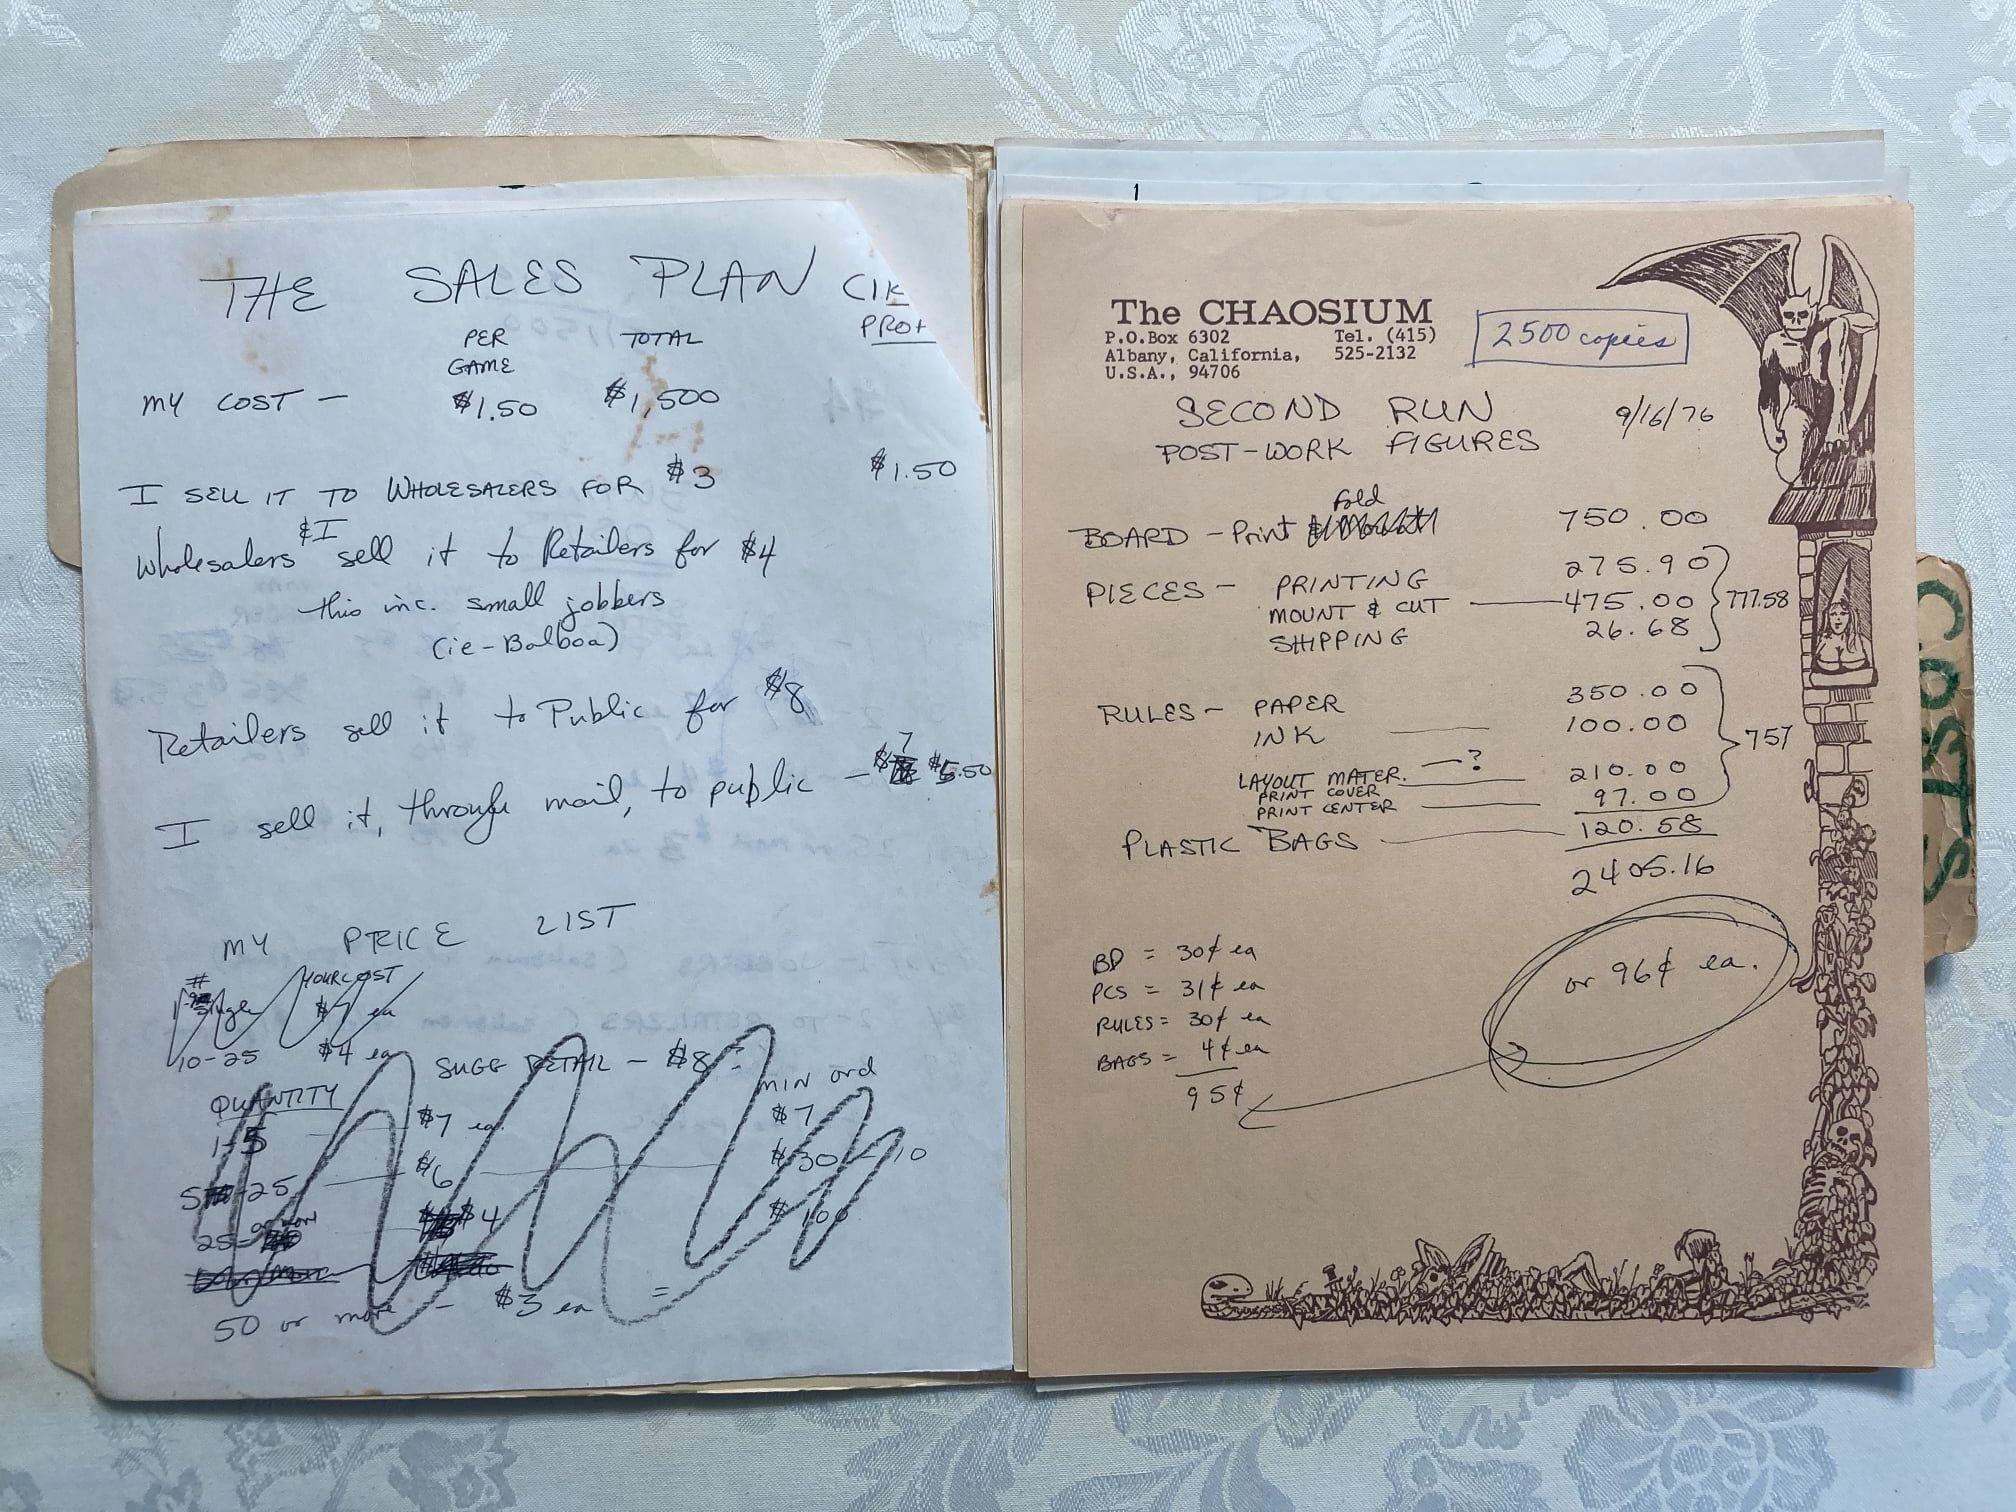 THE SALES PLAN (1K
PRO
PER GAME TOTAL
MY COST — $1.50 $1,500
I SELL IT TO WHOLESALERS FOR $3 $1.50
Wholesalers & I sell it to Retailers for $4
this inc. small jobbers
(ie - Balboa)
Retailers sell it to Public for $8
I sell it, through mail, to public — $7 $5.50
MY PRICE LIST
# YOUR COST
single ea
10-25 $4 ea
SUGG RETAIL — $8
QUANTITY MIN ord
1-5 $7 ea $7
5 -25 $6 $30 - 10
25 - or mor $4 $100
50 or more - $3 ea =
The CHAOSIUM
P.O.Box 6302 Tel. (415)
Albany, California, 525-2132
U.S.A., 94706
2500 copies
SECOND RUN 9/16/76
POST-WORK FIGURES
BOARD - Print Fold 750.00
PIECES - PRINTING 275.90
MOUNT & CUT 475.00 777.58
SHIPPING 26.68
RULES - PAPER 350.00
INK 100.00
757
LAYOUT MATER. — ?
PRINT COVER 210.00
PRINT CENTER 97.00
PLASTIC BAGS 120.58
2405.16
BD = 30¢ ea
PCS = 31¢ ea
RULES = 30¢ ea
BAGS = 4¢ ea
95¢
or 96¢ ea.
COSTS